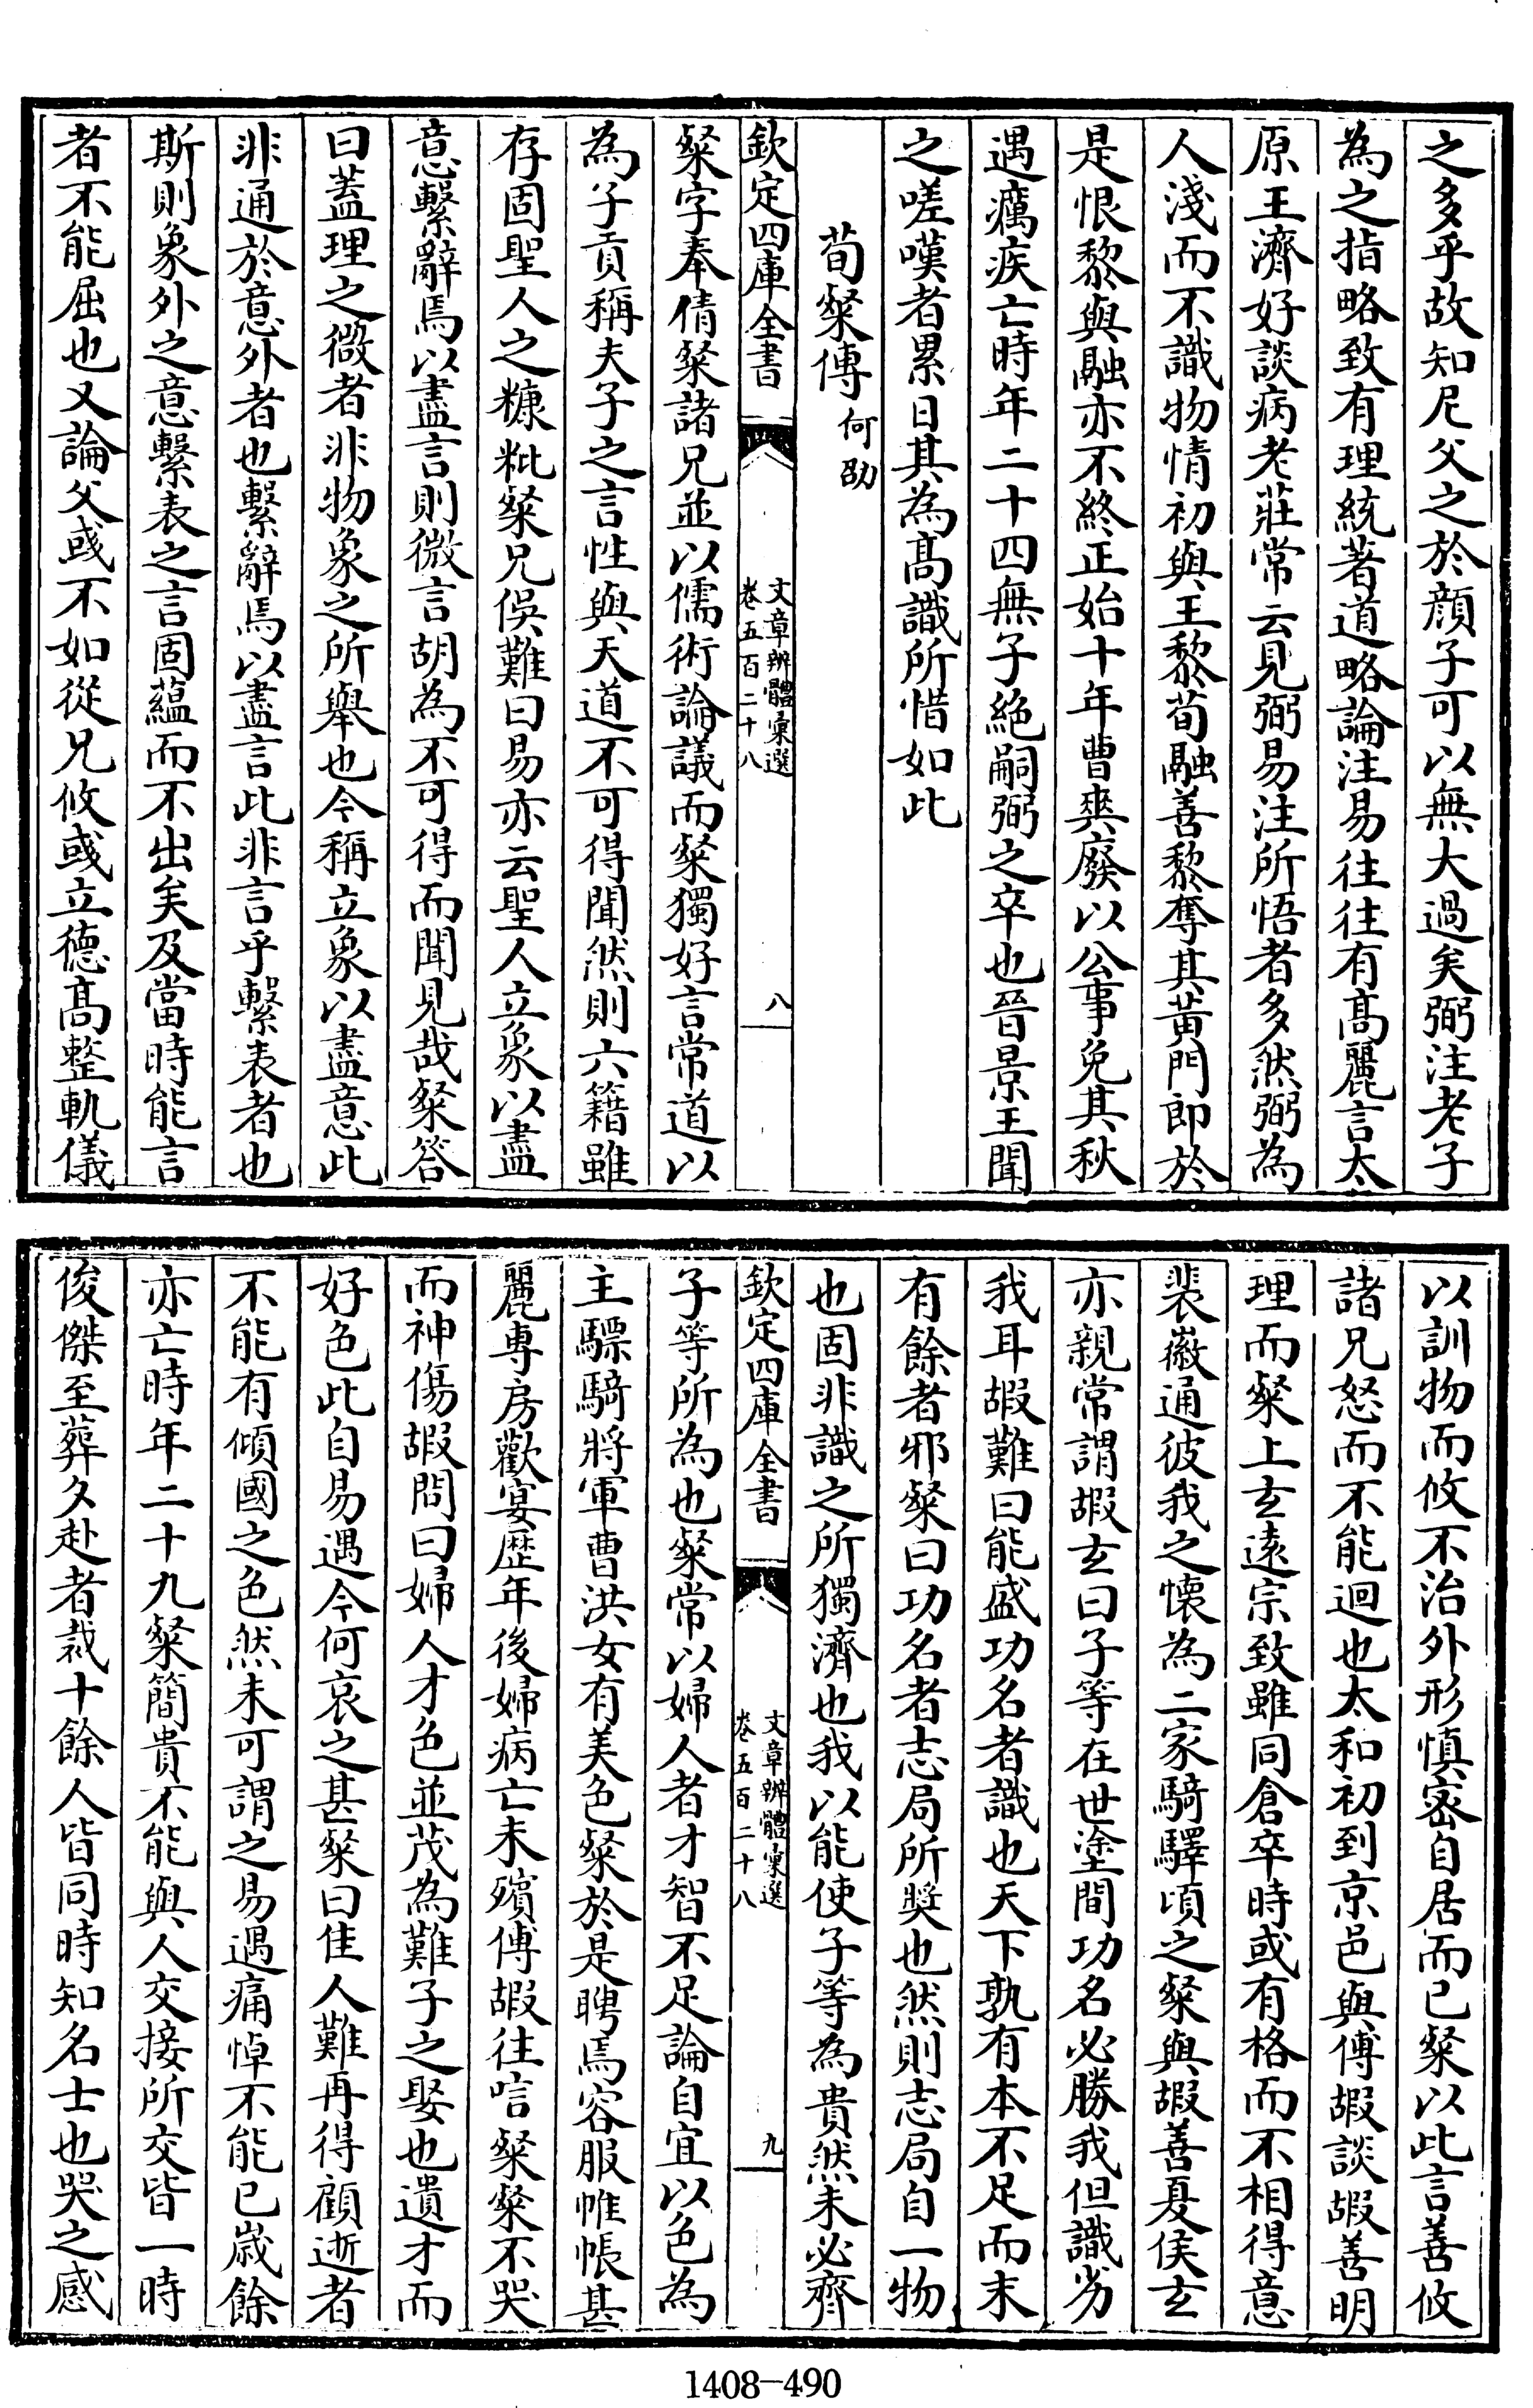 之多乎故知尼父之於顔子可以無大過矣弼注老子
為之指略致有理統著道略論注易往往有髙麗言太
原王濟好談病老莊常云見弼易注所悟者多然弼為
人淺而不識物情初與王黎荀融善黎奪其黃門郎於
是恨黎與融亦不終正始十年曹爽廢以公事免其秋
遇癘疾亡時年二十四無子絶嗣弼之卒也晉景王聞
之嗟嘆者累日其為髙識所惜如此
荀粲傳何劭
欽定四庫全書
文章辨體彙選
卷五百二十八
八
粲字奉倩粲諸兄並以儒術論議而粲獨好言常道以
為子貢稱夫子之言性與天道不可得聞然則六籍雖
存固聖人之糠粃粲兄俁難曰易亦云聖人立象以盡
意繫辭焉以盡言則微言胡為不可得而聞見哉粲答
曰蓋理之微者非物象之所舉也今稱立象以盡意此
非通於意外者也繫辭焉以盡言此非言乎繫表者也
斯則象外之意繫表之言固蘊而不出矣及當時能言
者不能屈也又論父彧不如從兄攸彧立德髙整軌儀
以訓物而攸不治外形慎密自居而已粲以此言善攸
諸兄怒而不能迴也太和初到京邑與傅嘏談嘏善明
理而粲上玄遠宗致雖同倉卒時或有格而不相得意
裴徽通彼我之懷為二家騎驛頃之粲與嘏善夏侯玄
亦親常謂嘏玄曰子等在世塗間功名必勝我但識劣
我耳嘏難曰能盛功名者識也天下孰有本不足而末
有餘者邪粲曰功名者志局所奬也然則志局自一物
也固非識之所獨濟也我以能使子等為貴然未必齊
欽定四庫全書
文章辨體彙選
卷五百二十八
九
子等所為也粲常以婦人者才智不足論自宜以色為
主驃騎將軍曹洪女有美色粲於是聘焉容服帷帳甚
麗專房歡宴歴年後婦病亡未殯傅嘏往唁粲粲不哭
而神傷嘏問曰婦人才色並茂為難子之娶也遺才而
好色此自易遇今何哀之甚粲曰佳人難再得顧逝者
不能有傾國之色然未可謂之易遇痛悼不能已歳餘
亦亡時年二十九粲簡貴不能與人交接所交皆一時
俊傑至葬夕赴者裁十餘人皆同時知名士也哭之感
1408-490